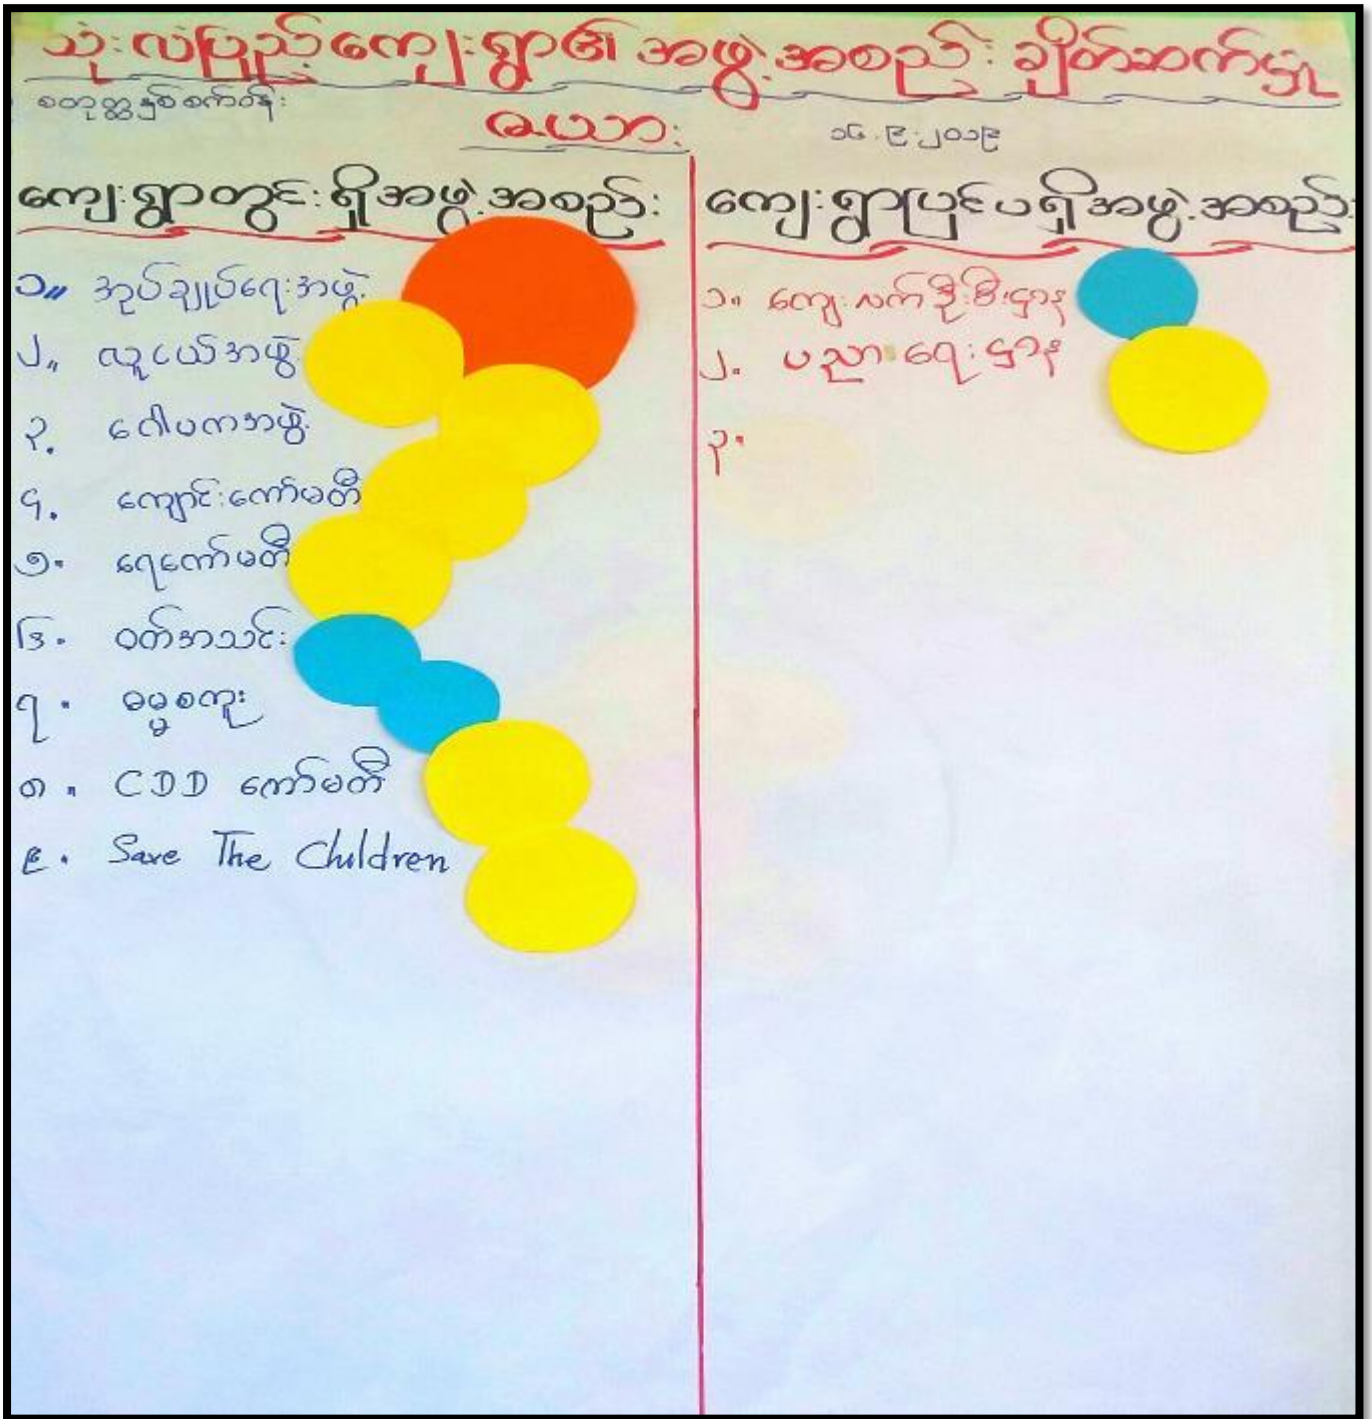 သုံးလံပြည့်ကျေးရွာ၏ အဖွဲ့အစည်း ချိတ်ဆက်မှု
စတုတ္ထနှစ်စက်ဝန်း
ဇယား
၁၆.၉.၂၀၁၉
ကျေးရွာတွင်းရှိအဖွဲ့အစည်း
၁။ အုပ်ချုပ်ရေးအဖွဲ့
၂။ လူငယ်အဖွဲ့
၃. ဂေါပကအဖွဲ့
၄. ကျောင်းကော်မတီ
၅. ရေကော်မတီ
၆. ဝတ်အသင်း
၇. ဓမ္မစကူး
၈. CDD ကော်မတီ
၉. Save The Children
ကျေးရွာပြင်ပရှိအဖွဲ့အစည်း
၁။ ကျေးလက်ဦးစီးဌာန
၂. ပညာရေးဌာန
၃.